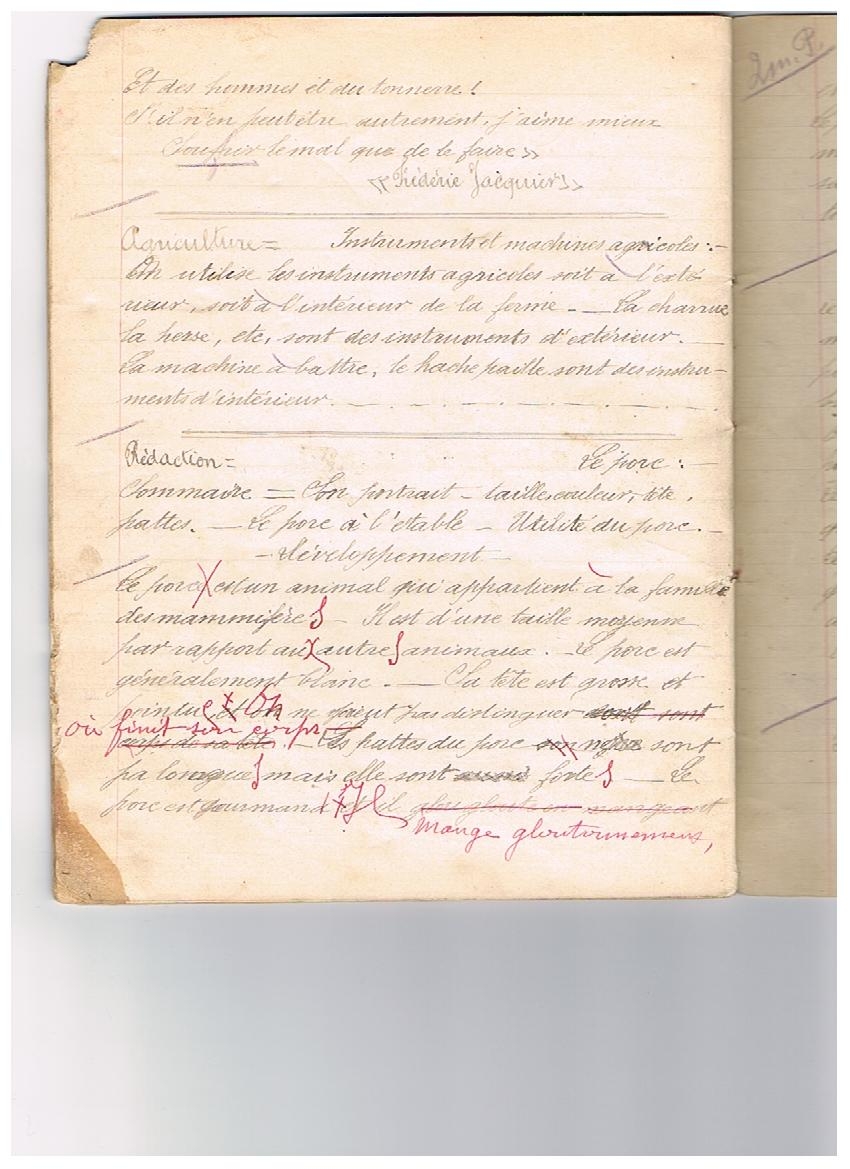 Et des hommes et du tonnerre !
S'il n'en peut être autrement, j'aime mieux
Souffrir le mal que de le faire »
« Frédérie Jacquier »
2m. P.
Agriculture = Instruments et machines agricoles : -
On utilise les instruments agricoles soit à l'exté
rieur, soit à l'intérieur de la ferme - _ La charrue
la herse, etc, sont des instruments d'extérieur. _
La machine à battre, le hache paille sont des instru-
ments d'intérieur.
Rédaction = Le porc : -
Sommaire = Son portrait - taille, couleur, tête,
pattes. _ Le porc à l'étable - Utilité du porc. -
- Développement -
Le porc est un animal qui appartient à la famille
des mammifères - Il est d'une taille moyenne
par rapport aux autres animaux. - Le porc est
généralement blanc. _ Sa tête est grosse et
pointue On ne peut pas distinguer dont sont
où finit son corps
corps de sa tête. - Les pattes du porc sont
pa longues mais elle sont aussi fortes _ Le
porc est gourmand et il mangeant
Mange gloutonnement,